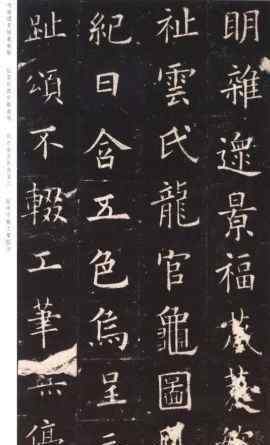 明雜遝景福葳蕤
祉雲氏龍官龜圖
紀日含五色烏呈三
趾頌不輟工筆無停